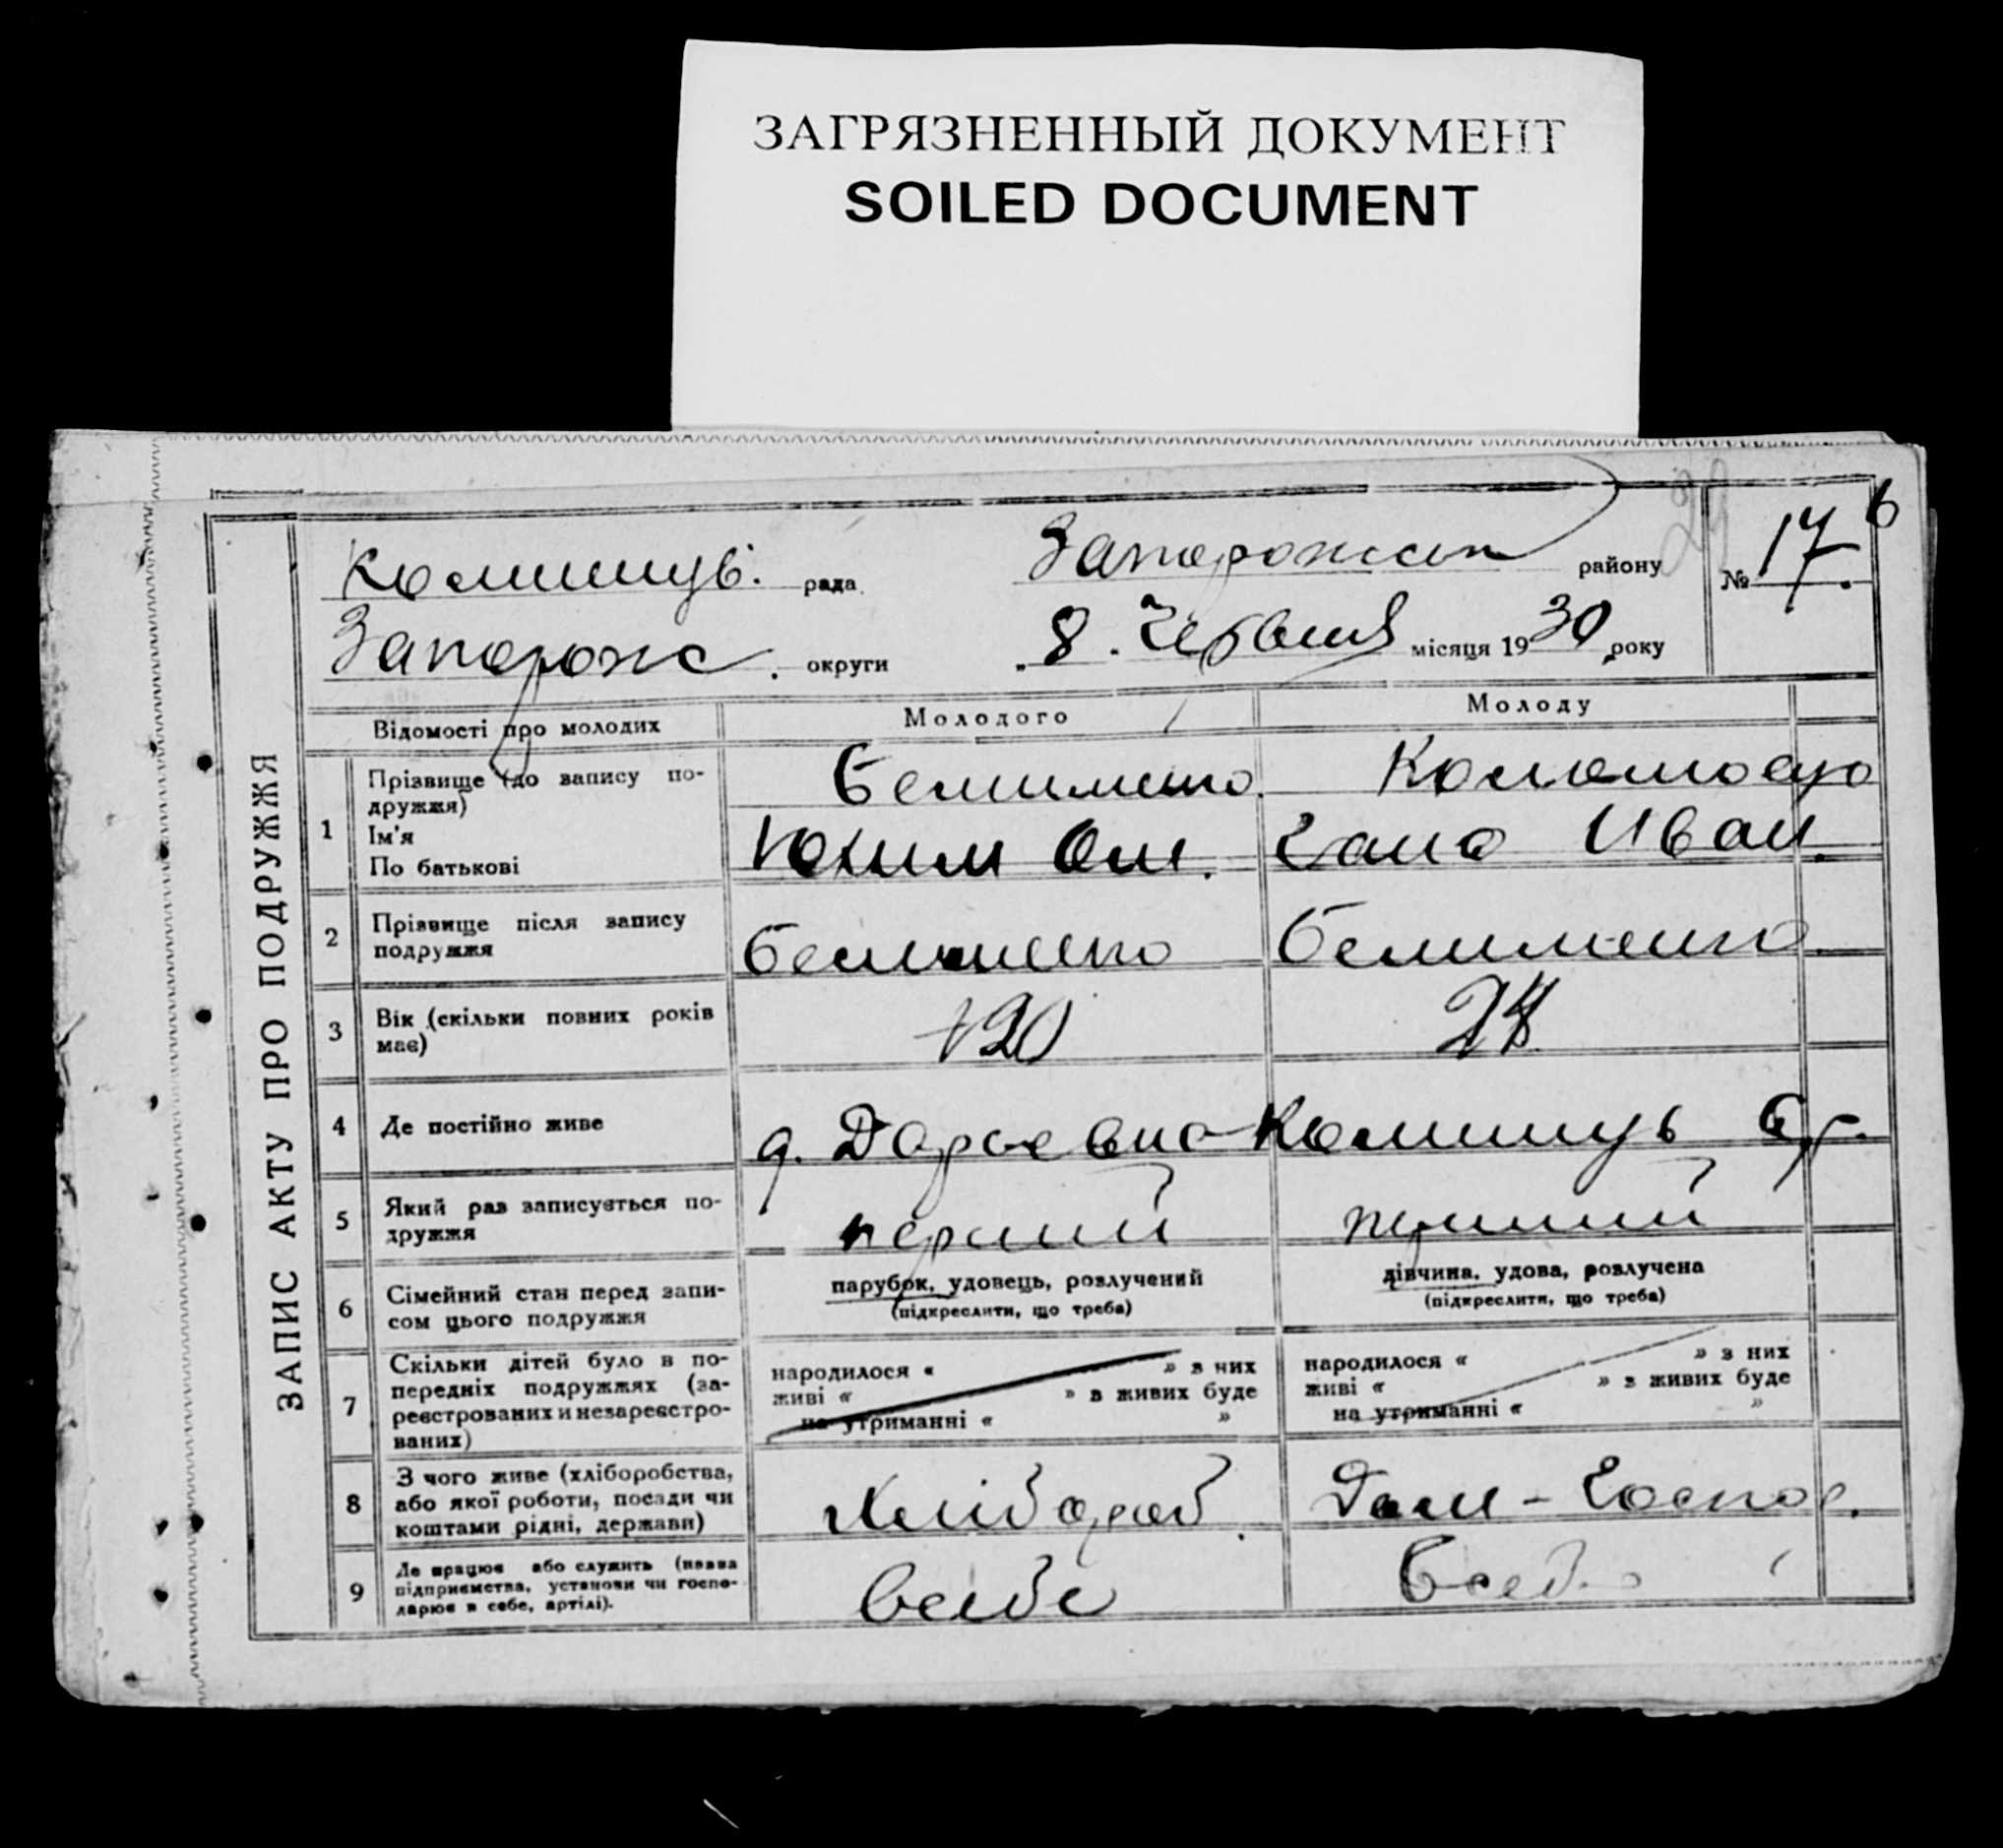 ЗАГРЯЗНЕННЫЙ ДОКУМЕНТ
SOILED DOCUMENT
6
ЗАПИС АКТУ ПРО ПОДРУЖЖЯ
Комишув. рада Запорожск району № 17.
Запорож. округи 8. Червня місяця 1930 року
Відомості про молодих Молодого Молоду
1 Прізвище (до запису по-
дружжя)
Ім'я Юхим Ом. Ганна Иван.
По батькові
2 Прізвище після запису
подружжя
3 Вік (скільки повних років
має) 20
4 Де постійно живе д. Дарьевка Комишув
5 Який раз записується по-
дружжя перший перший
6 Сімейний стан перед запи-
сом цього подружжя
парубок, удовець, розлучений
(підкреслити, що треба)
дівчина, удова, розлучена
(підкреслити, що треба)
7 Скільки дітей було в по-
передніх подружжях (за-
реєстрованих и незареєстро-
ваних)
народилося « » з них
живі « » з живих буде
на утриманні « »
народилося « » з них
живі « » з живих буде
на утриманні « »
8 З чого живе (хліборобства,
або якої роботи, посади чи
коштами рідні, держави)
Хлібороб. Дом-Господ.
9 Де працює або служить (назва
підприємства, установи чи госпо-
дарює в себе, артілі).
в себе в себе